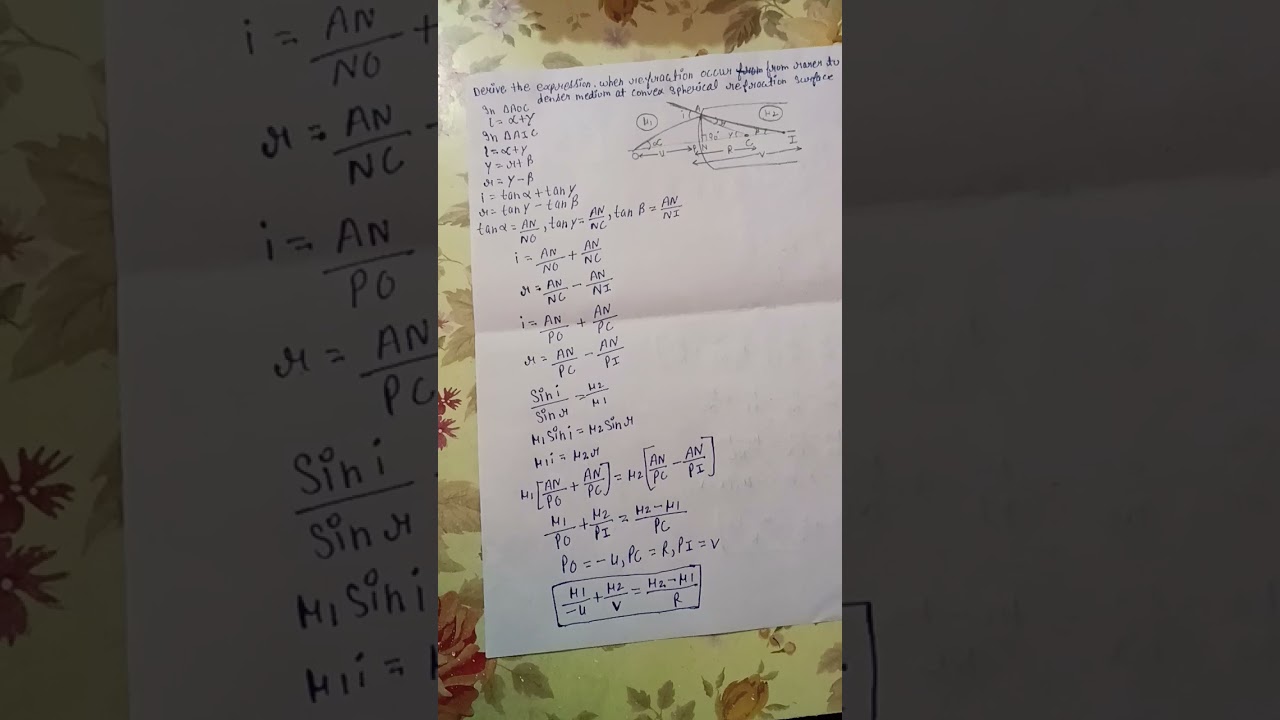 Derive the expression, when refraction occur from rarer to
denser medium at convex spherical refraction surface
In ΔAOC
i = α+γ
In ΔAIC
i = α+γ
γ = r+β
r = γ-β
i = tanα + tanγ
r = tanγ - tanβ
tanα = AN/NO, tanγ = AN/NC, tanβ = AN/NI
i = AN/NO + AN/NC
r = AN/NC - AN/NI
i = AN/PO + AN/PC
r = AN/PC - AN/PI
Sin i/Sin r = μ2/μ1
μ1 Sin i = μ2 Sin r
μ1 i = μ2 r
μ1[AN/PO + AN/PC] = μ2[AN/PC - AN/PI]
μ1/PO + μ2/PI = μ2-μ1/PC
PO = -u, PC = R, PI = v
μ1/-u + μ2/v = μ2-μ1/R
μ1
μ2
A
i
r
α
90°
γ
O
u
P
N
R
C
I
v
i = AN/NO +
r = AN/NC -
i = AN/PO
r = AN/PC
Sin i/Sin r
μ1 Sin i
μ1 i =